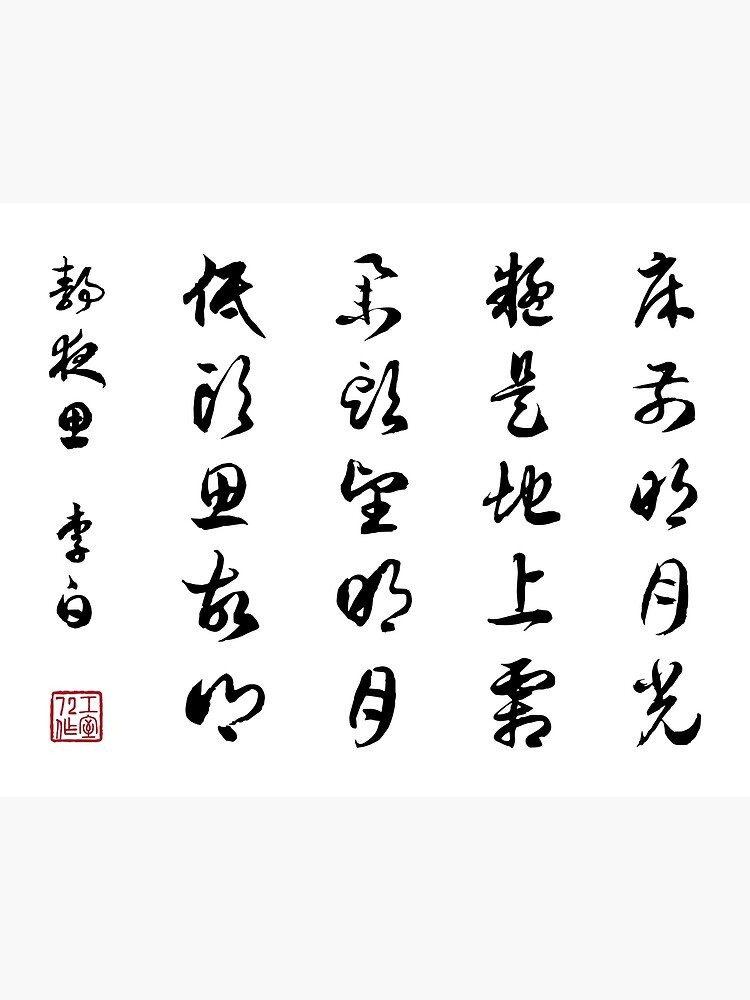 床前明月光
疑是地上霜
舉頭望明月
低頭思故鄉
靜夜思 李白
72工作室